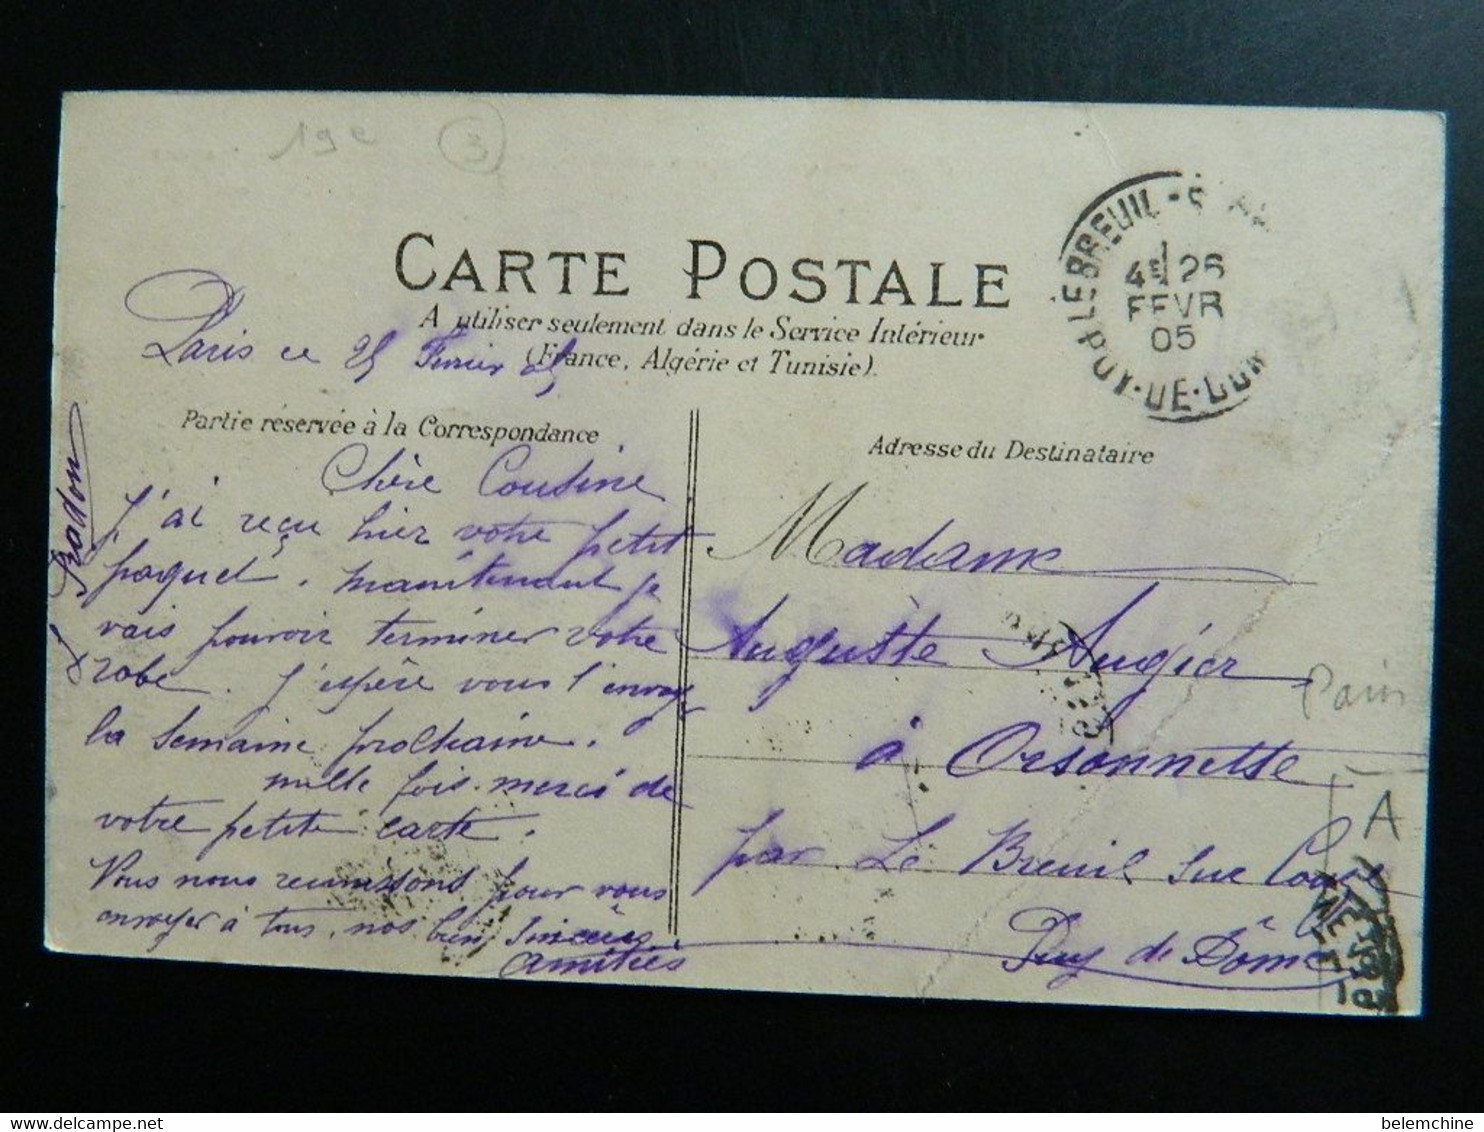 19e 3
CARTE POSTALE
A utiliser seulement dans le Service Intérieur
(France, Algérie et Tunisie).
Paris ce 25 Février 05
Partie réservée à la Correspondance
Chère Cousine
J'ai reçu hier votre petit
paquet. maintenant je
vais pouvoir terminer votre
robe. J'espère vous l'envoyer
la semaine prochaine.
mille fois merci de
votre petite carte.
Vous nous réunissons pour vous
envoyer à tous, nos bien sincères
amitiés
Pradon
Adresse du Destinataire
Madame
Auguste Augier
à Orsonnette
par Le Breuil sur Couze
Puy de Dôme
LE BREUIL-S
4E 26
FEVR
05
PUY-DE-DOM
Paris
A
belemchine